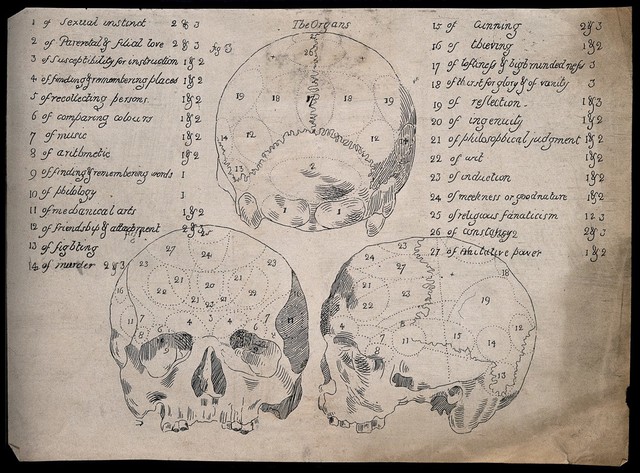 The Organs
1 of Sexual instinct 2 & 3
2 of Parental & filial love 2 & 3
3 of Susceptibility for instruction 1 & 2
4 of finding & remembering places 1 & 2
5 of recollecting persons 1 & 2
6 of comparing colours 1 & 2
7 of music 1 & 2
8 of arithmetic 1 & 2
9 of finding & remembering words 1
10 of philology 1
11 of mechanical arts 1 & 2
12 of friendship & attachment 2 & 3
13 of fighting
14 of murder 2 & 3
15 of Cunning 2 & 3
16 of thieving 1 & 2
17 of loftiness & highmindedness 3
18 of thirst for glory & of vanity 3
19 of reflection 1 & 3
20 of ingenuity 1 & 2
21 of philosophical judgment 1 & 2
22 of wit 1 & 2
23 of induction 1 & 2
24 of meekness or goodnature 1 & 2
25 of religious fanaticism 1 2 3
26 of constancy 2 & 3
27 of imitative power 1 & 2
fig 3
25
26
19 18 17 18 19
14 12 12 14
13
2
1 1
27
24
23 23
22 20 22
21 21
16
11 7
4 3 4
7
24 23
27
18
21
22 23
19
4
8
7 11 15 14 12
13